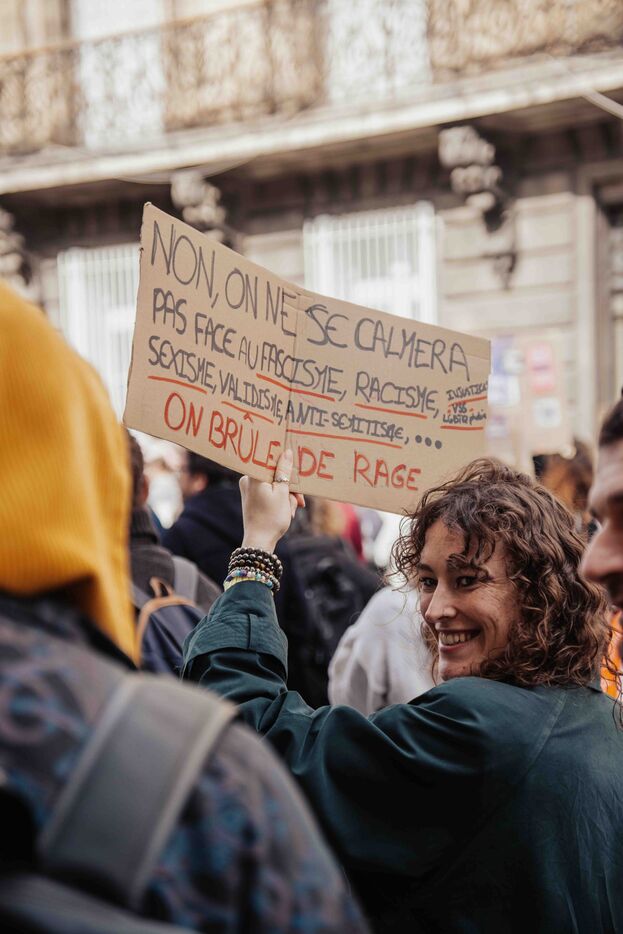 NON, ON NE SE CALMERA
PAS FACE AU FASCISME, RACISME,
SEXISME, VALIDISME, ANTI-SEMITISME, ...
INJUSTICES
VSS
LGBTQ phobie
ON BRÛLE DE RAGE